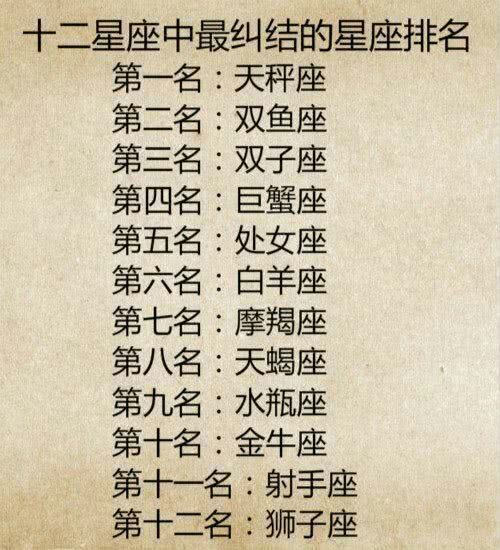 十二星座中最纠结的星座排名
第一名：天秤座
第二名：双鱼座
第三名：双子座
第四名：巨蟹座
第五名：处女座
第六名：白羊座
第七名：摩羯座
第八名：天蝎座
第九名：水瓶座
第十名：金牛座
第十一名：射手座
第十二名：狮子座